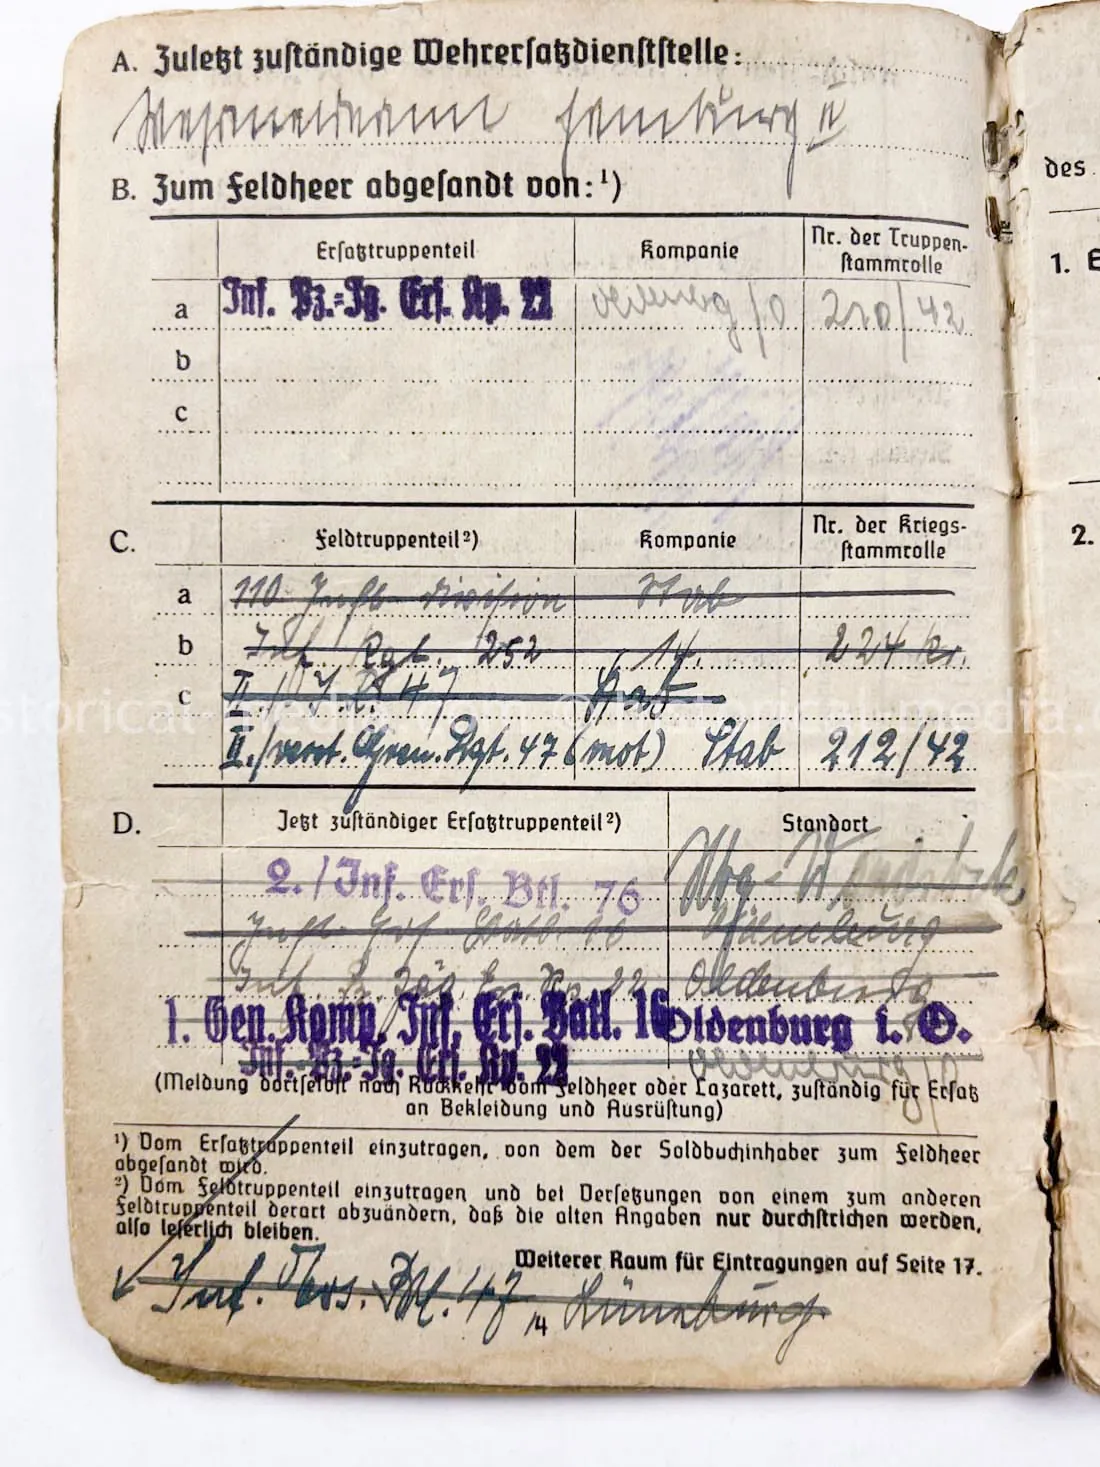 A. Zuletzt zuständige Wehrersatzdienststelle:
Wehrmeldeamt Hamburg II
B. Zum Feldheer abgesandt von: ¹)
Ersatztruppenteil Kompanie Nr. der Truppen-
stammrolle
a Inf. Pz.=Jg. Ers. Kp. 22 Oldenburg /O 210/42
b
c
C. Feldtruppenteil ²) Kompanie Nr. der Kriegs-
stammrolle
a 110 Inft. Division Stab
b Inf. Rgt. 252 14. 224
c II./J.R. 47 Stab
II./verst. Gren. Rgt. 47 (mot) Stab 212/42
D. Jetzt zuständiger Ersatztruppenteil ²) Standort
2./Inf. Ers. Btl. 76 Hbg-Wandsbek
Inft. Ers. Batl. 16 Oldenburg
Inf. Pz. Jäg. Ers. Kp. 22 Oldenburg
1. Gen. Komp. Inf. Ers. Batl. 16 Oldenburg i. O.
Inf. Pz.=Jg. Ers. Kp. 22 Oldenburg /O
(Meldung dortselbst nach Rückkehr vom Feldheer oder Lazarett, zuständig für Ersatz
an Bekleidung und Ausrüstung)
¹) Vom Ersatztruppenteil einzutragen, von dem der Soldbuchinhaber zum Feldheer
abgesandt wird.
²) Vom Feldtruppenteil einzutragen und bei Versetzungen von einem zum anderen
Feldtruppenteil derart abzuändern, daß die alten Angaben nur durchstrichen werden,
also leserlich bleiben.
Weiterer Raum für Eintragungen auf Seite 17.
Inf. Ers. Btl. 47 14 Lüneburg
des
1. E
2.